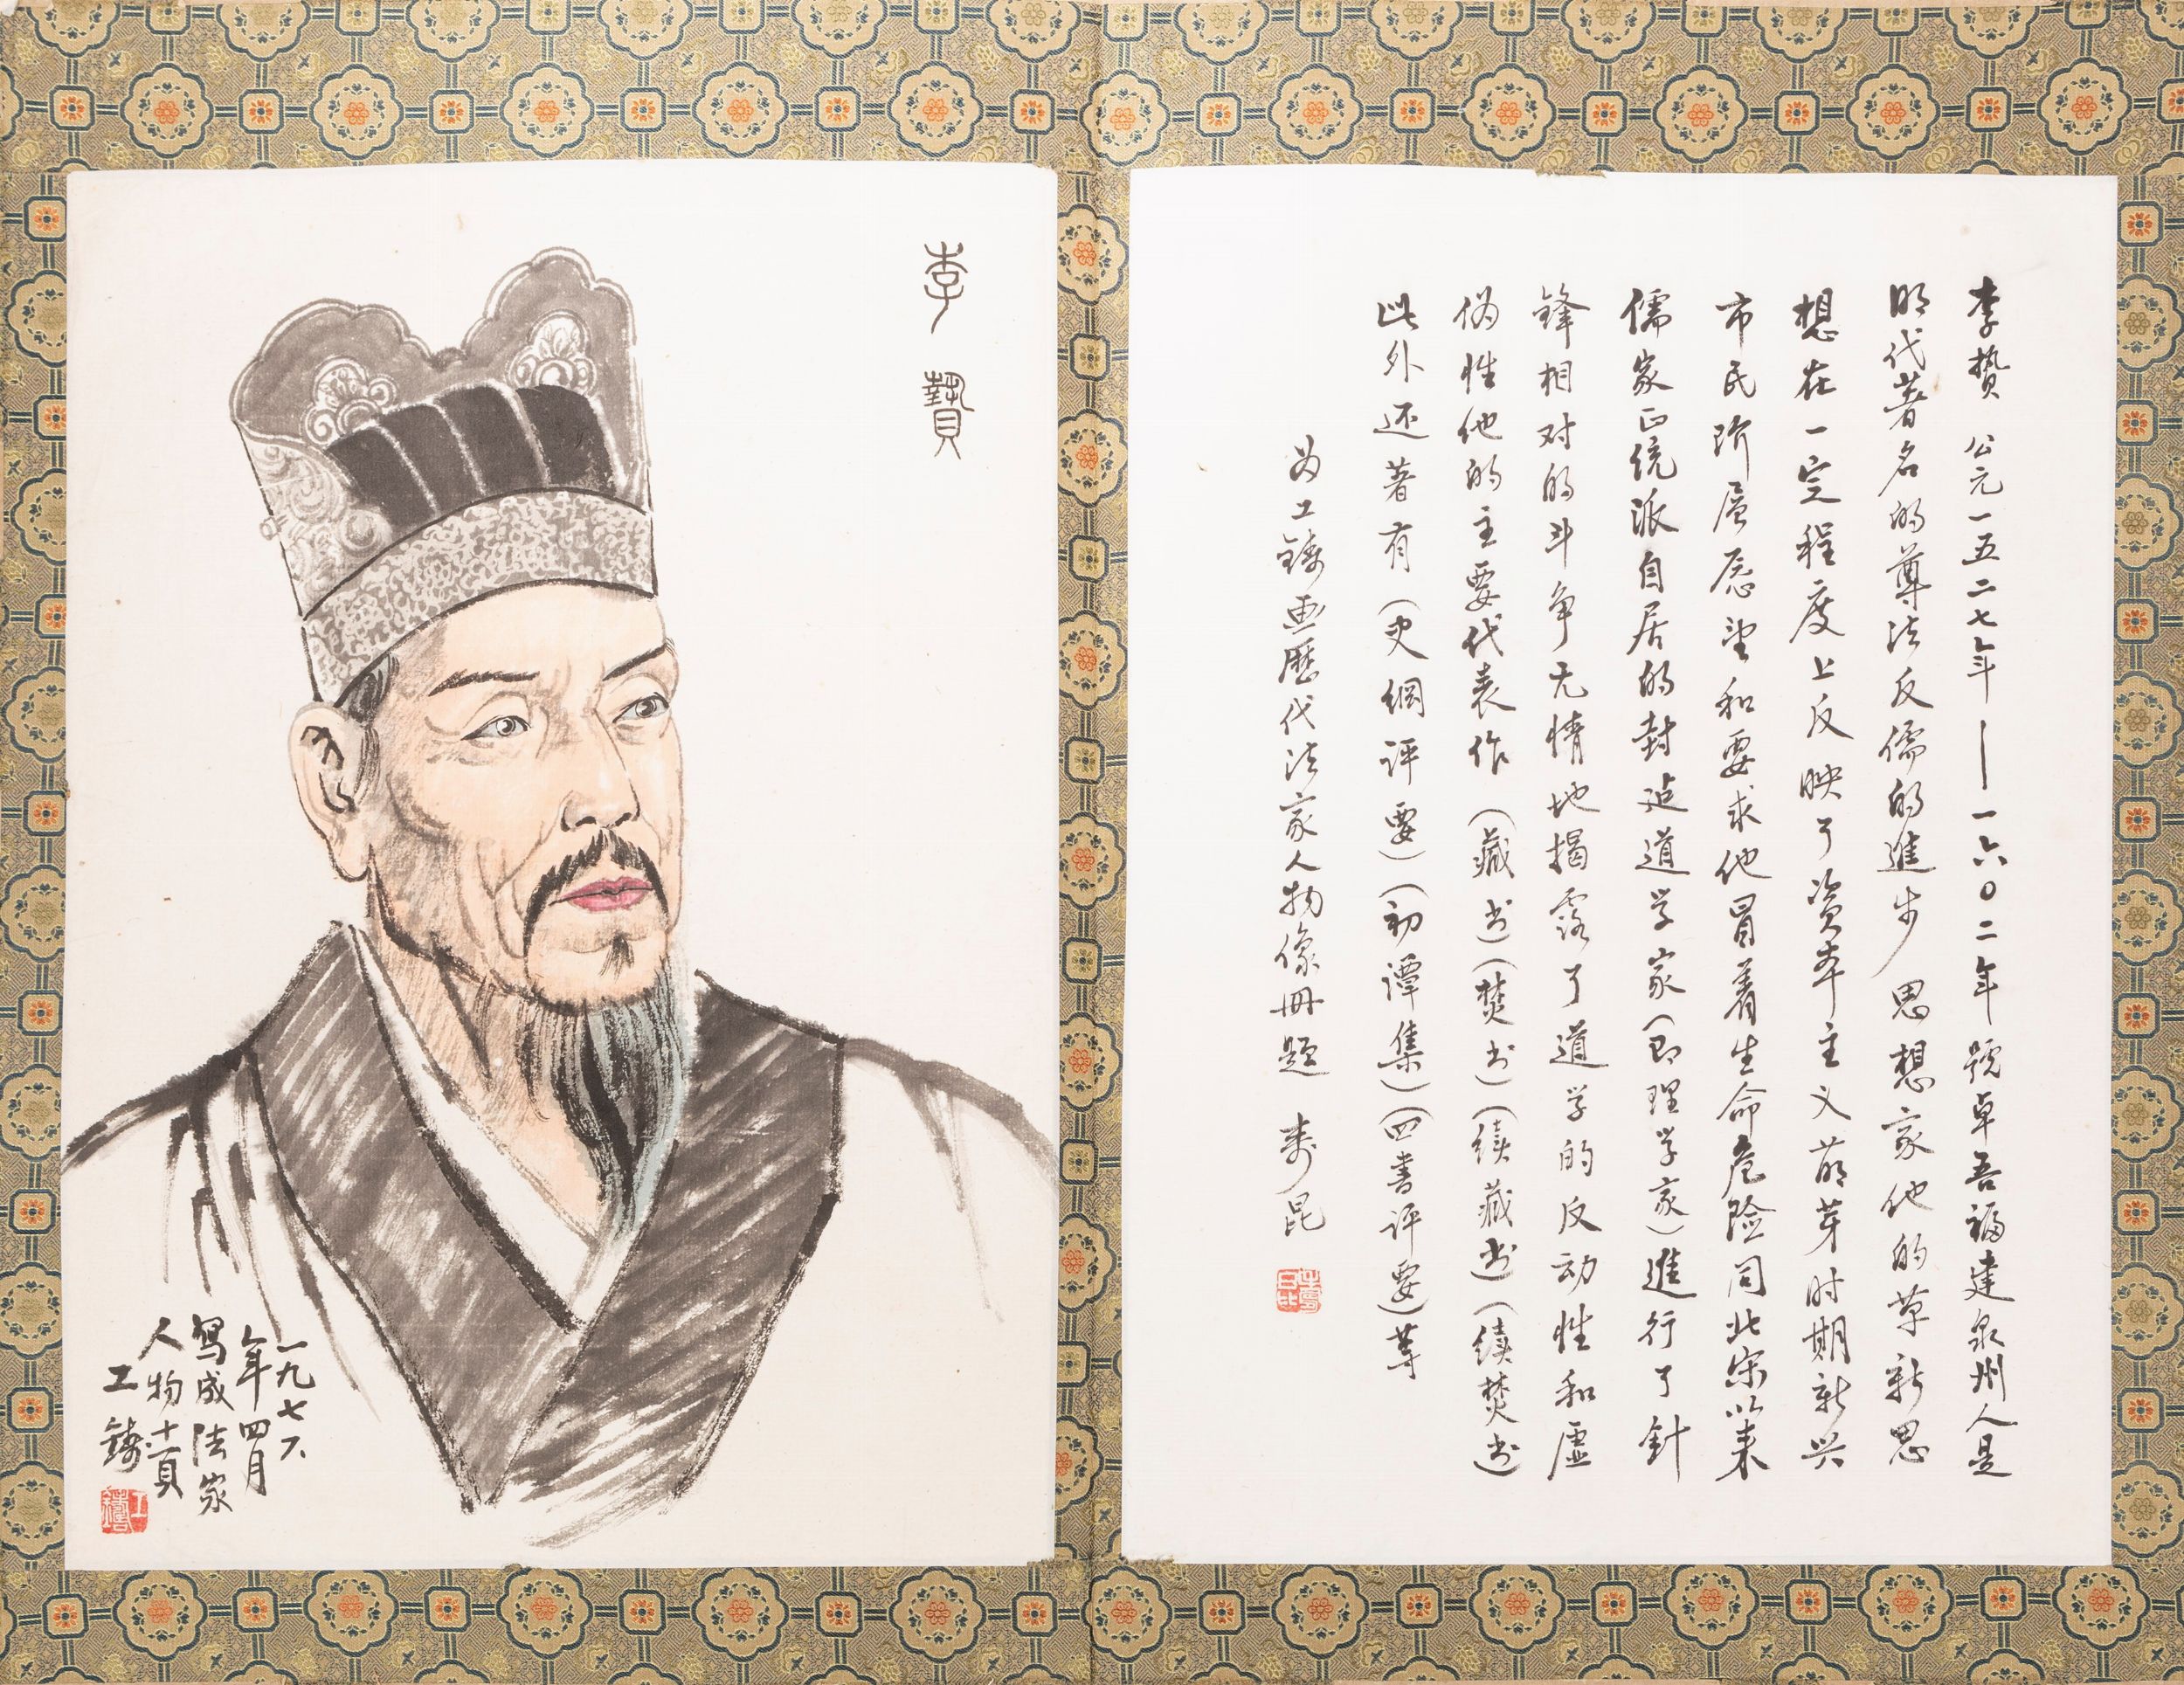 李贽 公元一五二七年——一六〇二年號卓吾福建泉州人是
明代著名的尊法反儒的進步思想家他的革新思
想在一定程度上反映了资本主义萌芽时期新兴
市民阶层愿望和要求他冒着生命危险同北宋以来
儒家正统派自居的封建道学家(即理学家)進行了針
锋相对的斗争无情地揭露了道学的反动性和虚
伪性他的主要代表作(藏书)(焚书)(续藏书)(续焚书)
此外还著有(史綱评要)(初潭集)(四書评要)等
为工鑄画歷代法家人物像册题 寿昆
李贄
一九七六
年四月
寫成法家
人物十一頁
工鑄
工鑄